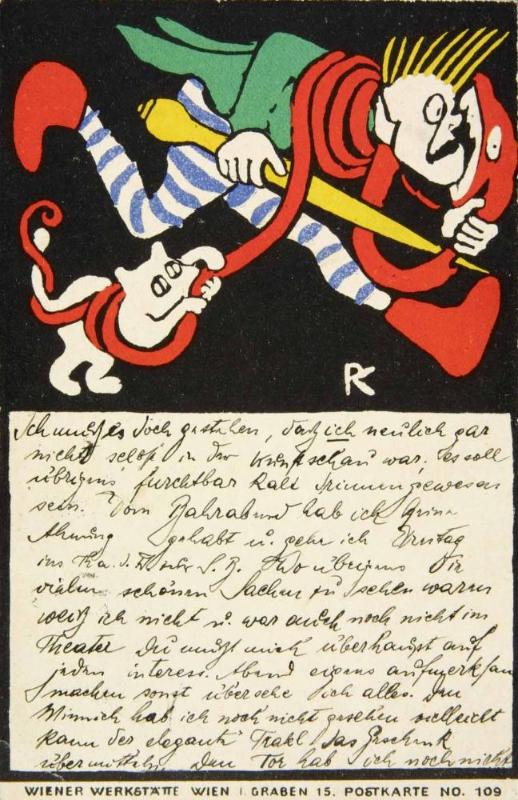 RK
Ich muß es doch gestehen, daß ich neulich gar
nicht selbst in der Kunstschau war, es soll
übrigens furchtbar kalt drinnen gewesen
sein. Vom Bahrabend hab ich keine
Ahnung gehabt u. gehe ich Dienstag
ins Wo übrigens die
vielen schönen Sachen zu sehen waren
weiß ich nicht u. war auch noch nicht im
Theater Du mußt mich überhaupt auf
jeden interess. Abend eigens aufmerksam
machen sonst übersehe ich alles. Den
hab ich noch nicht gesehen vielleicht
kann der elegante Trakl das Geschenk
übermitteln. Den Tor hab ich noch nicht
WIENER WERKSTÄTTE WIEN I. GRABEN 15. POSTKARTE NO. 109